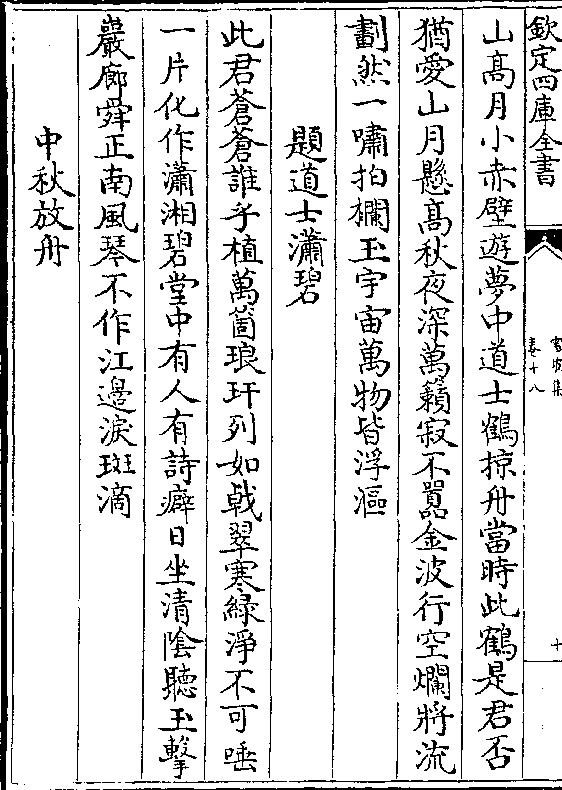 欽定四庫全書
雪坡集
卷十八
十
山髙月小赤壁遊夢中道士鶴掠舟當時此鶴是君否
猶愛山月懸髙秋夜深萬籟寂不嚚金波行空爛將流
劃然一嘯拍欄玉宇宙萬物皆浮漚
題道士瀟碧
此君蒼蒼誰手植萬箇琅玕列如㦸翠寒緑淨不可唾
一片化作瀟湘碧堂中有人有詩癖日坐清陰聽玉擊
巖廊舜正南風琴不作江邉淚斑滴
中秋放舟